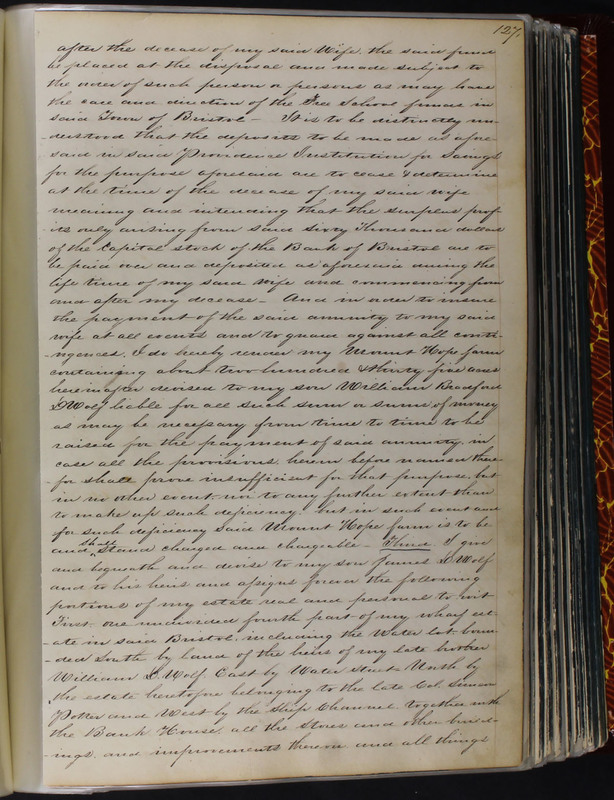 127.
after the decease of my said Wife, the said fund
be placed at the disposal and made subject to
the order of such person or persons as may have
the care and direction of the Free School funds in
said Town of Bristol — It is to be distinctly un-
-derstood that the deposits to be made as afore-
said in said Providence Institution for Savings
for the purpose aforesaid are to cease & determine
at the time of the decease of my said wife
meaning and intending that the surplus prof-
its only arising from said sixty thousand dollars
of the Capital stock of the Bank of Bristol are to
be paid over and deposited as aforesaid during the
life time of my said wife and commencing from
and after my decease — And in order to insure
the payment of the said annuity to my said
wife at all events and to guard against all conti-
-ngences, I do hereby render my Mount Hope farm
containing about two hundred & thirty five acres
hereinafter devised to my son William Bradford
D'Wolf liable for all such sum or sums of money
as may be necessary from time to time to be
raised for the payment of said annuity, in
case all the provisions herein before named there-
-for shall prove insufficient for that purpose, but
in no other event, nor to any further extent than
to make up such deficiency, but in such event and
for such deficiency said Mount Hope farm is to be
and shall stand charged and chargeable — Third I give
and bequeath and devise to my son James D'Wolf
and to his heirs and assigns forever the following
portions of my estate real and personal to wit
First. one undivided fourth part of my wharf est-
ate in said Bristol, including the Water lot, boun-
-ded South by land of the heirs of my late brother
William D'Wolf, East by Water Street North by
the estate heretofore belonging to the late Col. Simeon
Potter and West by the Ship Channel, together with
the Bank House, all the Stores and other build-
-ings, and improvements thereon and all things